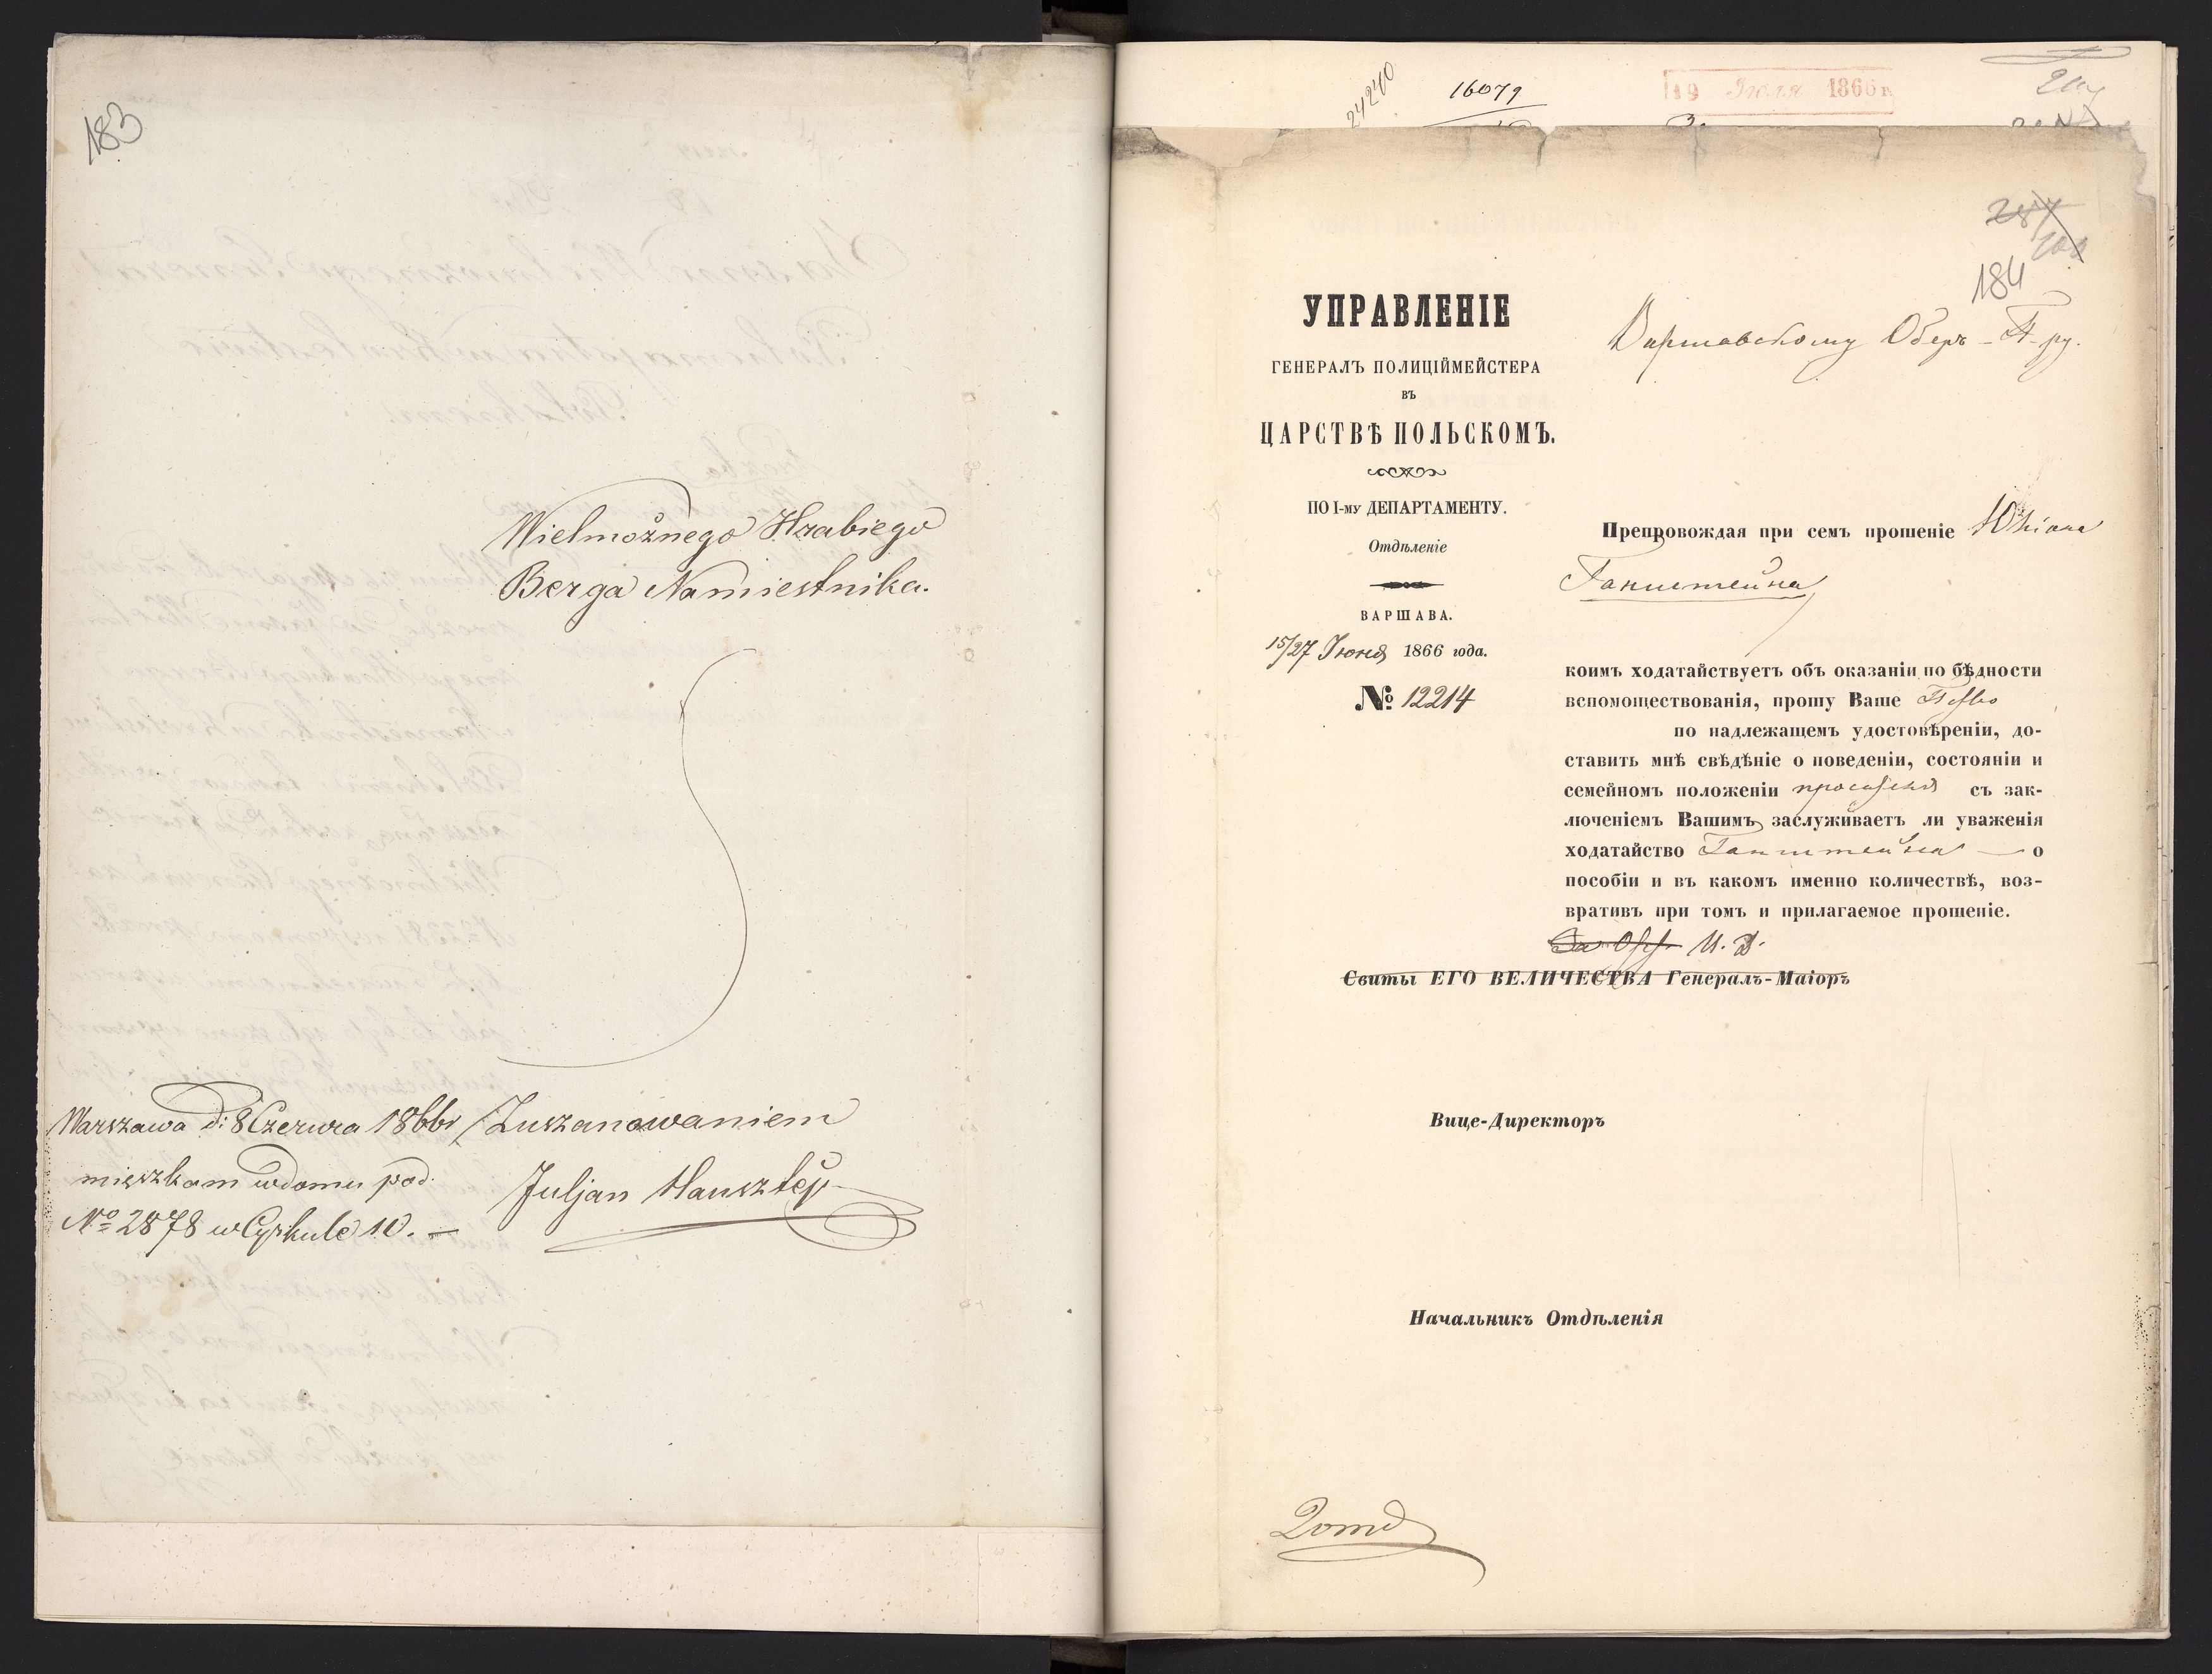 183
Wielmożnego Hrabiego
Berga Namiestnika.
Warszawa d: 8 Czerwca 1866r
mięszkam w domu pod
№ 2878 w Cyrkule 10. —
Z uszanowaniem
Juljan Hausztejn
24240
16079
19 Іюля 1866 г.
184
УПРАВЛЕНІЕ
ГЕНЕРАЛЪ ПОЛИЦІЙМЕЙСТЕРА
ВЪ
ЦАРСТВѢ ПОЛЬСКОМЪ.
ПО I-му ДЕПАРТАМЕНТУ.
Отдѣленіе
ВАРШАВА.
15/27 Іюня 1866 года.
№ 12214
Варшавскому Оберъ-П-ру.
Препровождая при семъ прошеніе Юліана
Ганштейна
коимъ ходатайствуетъ объ оказаніи по бѣдности
вспомоществованія, прошу Ваше
по надлежащемъ удостовѣреніи, до-
ставить мнѣ свѣдѣніе о поведеніи, состояніи и
семейномъ положеніи просителя съ зак-
люченіемъ Вашимъ заслуживаетъ ли уваженія
ходатайство Ганштейна — о
пособіи и въ какомъ именно количествѣ, воз-
вративъ при томъ и прилагаемое прошеніе.
И. Д.
Свиты ЕГО ВЕЛИЧЕСТВА Генералъ-Маіоръ
Вице-Директоръ
Начальникъ Отдѣленія